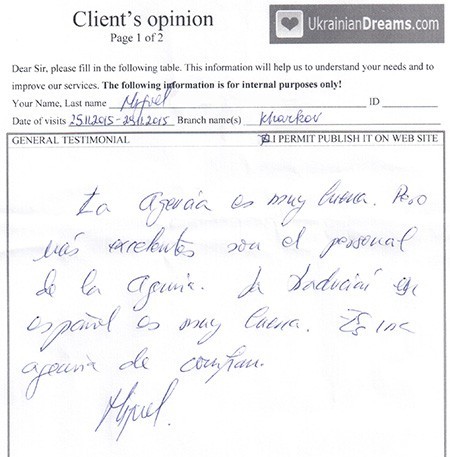 Client's opinion
Page 1 of 2
UkrainianDreams.com
Dear Sir, please fill in the following table. This information will help us to understand your needs and to
improve our services. The following information is for internal purposes only!
Your Name, Last name Miguel ID
Date of visits 25.11.2015-29.11.2015 Branch name(s) Kharkov
GENERAL TESTIMONIAL I PERMIT PUBLISH IT ON WEB SITE
La agencia es muy buena. Pero
más excelentes son el personal
de la agencia. La en
español es muy buena. Es una
agencia de
Miguel.